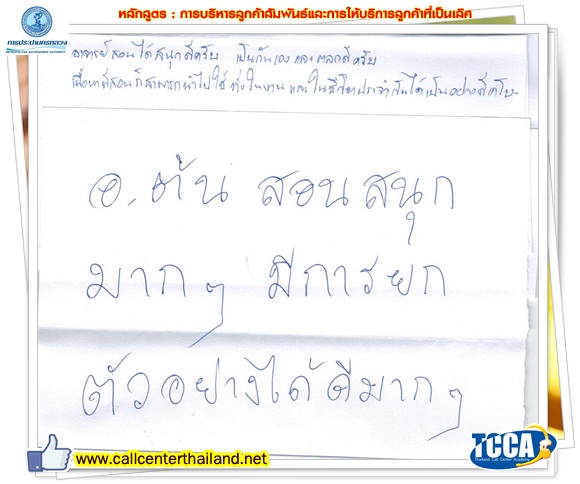 หลักสูตร : การบริหารลูกค้าสัมพันธ์และการให้บริการลูกค้าที่เป็นเลิศ
การประปานครหลวง
METROPOLITAN WATERWORKS AUTHORITY
อาจารย์สอนได้สนุกดีครับ เป็นกันเอง และตลกดีครับ
เนื้อหาที่สอนก็สามารถนำไปใช้ ทั้งในงาน และในชีวิตประจำวันได้เป็นอย่างดีครับ
อ. ต้น สอนสนุก
มากๆ มีการยก
ตัวอย่างได้ดีมากๆ
www.callcenterthailand.net
TCCA
Thailand Call Center Academy